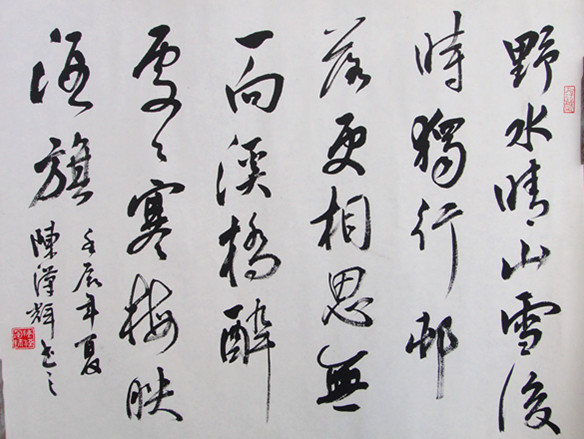 野水晴山雪後
時獨行邨
落更相思無
一向溪橋醉
處々寒梅映
酒旗
壬辰年夏
陳漢輝書之